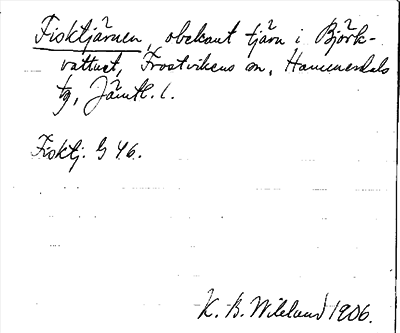 Fisktjärnen, obekant tjärn i Björk-
vattnet, Frostvikens sn, Hammerdals
tg, Jämtl. l.
Fisktj. G 46.
K. B. Wiklund 1906.